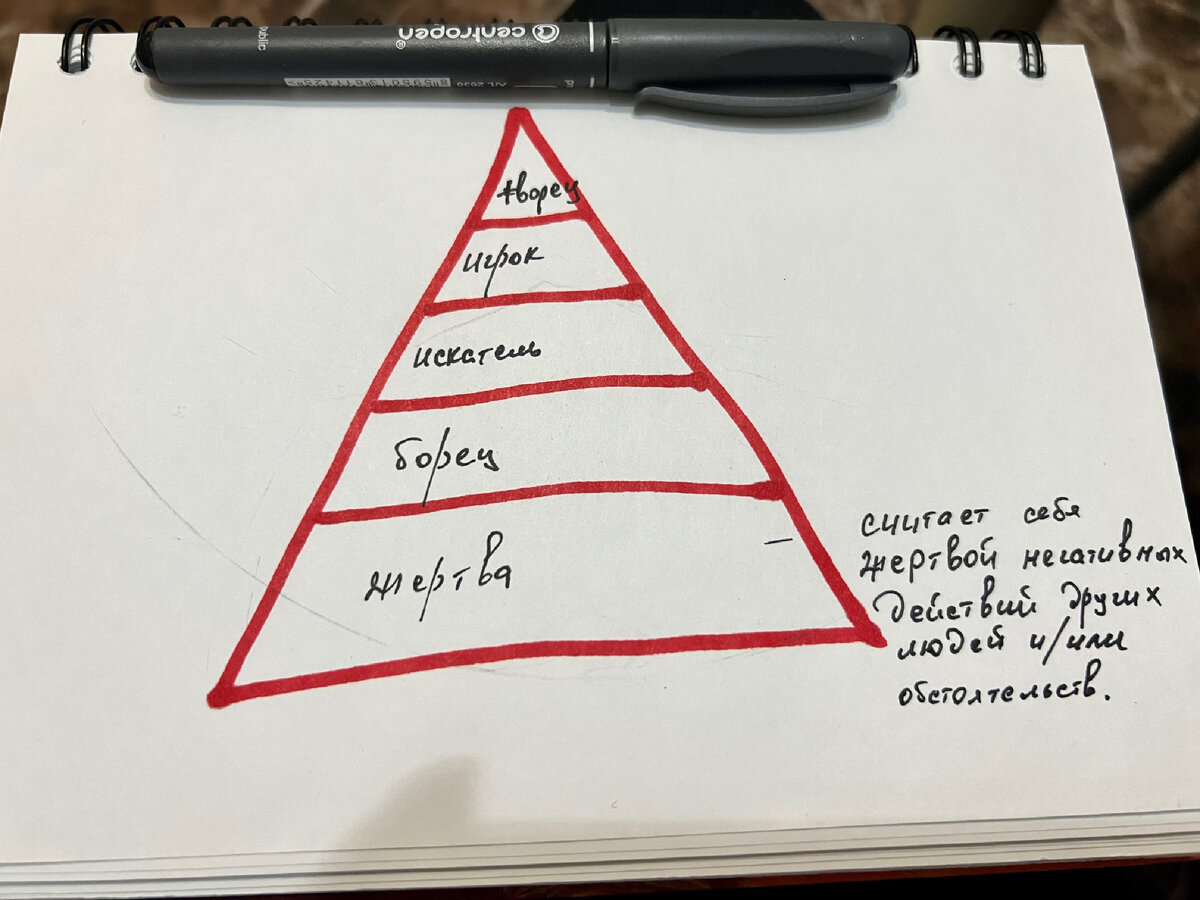 centropen®
творец
игрок
искатель
борец
жертва –
считает себя
жертвой негативных
действий других
людей и/или
обстоятельств.